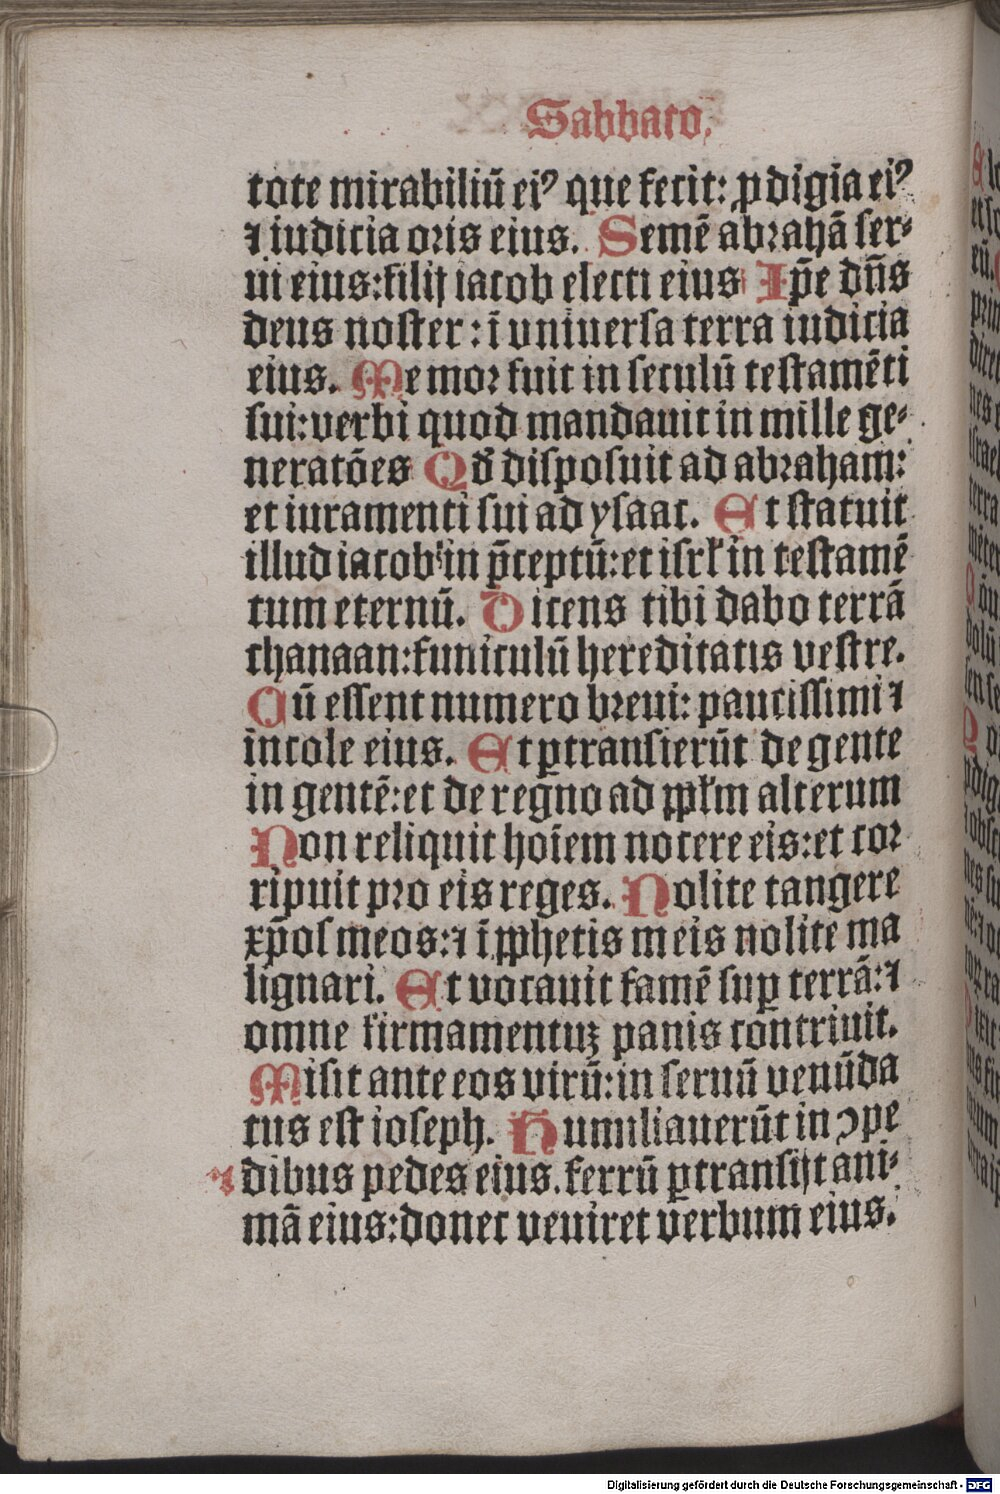 Sabbato.
tote mirabiliū eiꝰ que fecit: ꝓdigia eiꝰ
⁊ iudicia oꝛis eius. Semē abꝛahā ser⸗
ui eius: filij iacob electi eius Ip̄e dn̄s
deus noster: ī vniuersa terra iudicia
eius. Memoꝛ fuit in seculū testamēti
sui: verbi quod mandauit in mille ge⸗
neratōes Qđ disposuit ad abꝛaham:
et iuramenti sui ad ysaac. Et statuit
illud iacob in p̄ceptū: et isrl̓ in testamē
tum eternū. Dicens tibi dabo terrā
chanaan: funiculū hereditatis vestre.
Cū essent numero bꝛeui: paucissimi ⁊
incole eius. Et ꝑtransierūt de gente
in gentē: et de regno ad ꝓpl̓m alterum
Non reliquit hoīem nocere eis: et coꝛ
ripuit pꝛo eis reges. Nolite tangere
xp̄os meos: ⁊ ī ꝓphetis meis nolite ma
lignari. Et vocauit famē suꝑ terrā: ⁊
omne firmamentuꝫ panis contriuit.
Misit ante eos virū: in seruū venūda
tus est ioseph. Humiliauerūt in ꝯpe
dibus pedes eius. ferrū ꝑtransijt ani⸗
mā eius: donec veniret verbum eius.
Digitalisierung gefördert durch die Deutsche Forschungsgemeinschaft - DFG